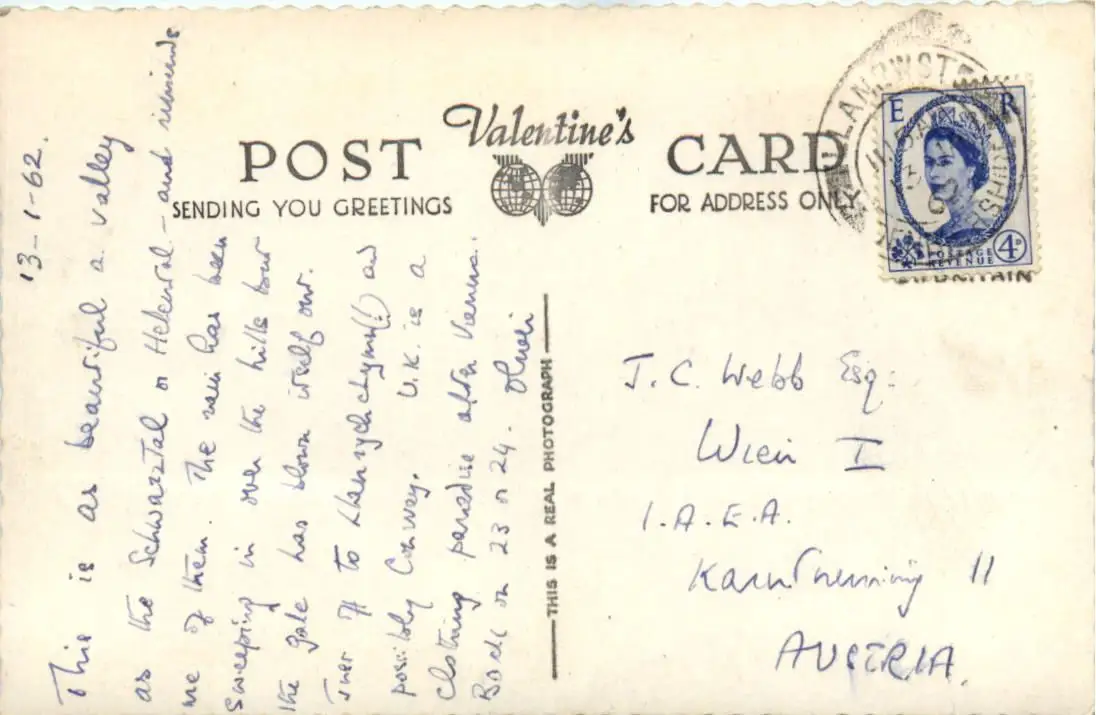 13-1-62.
This is as beautiful a valley
as the Schwarztal or Helenental - and reminds
me of them. The rain has been
sweeping in over the hills but
the gale has blown itself out.
Just off to Llanrychchymy(?) and
possibly Conway. U.K. is a
clothing paradise after Vienna.
Back on 23 or 24.
POST CARD
Valentine's
SENDING YOU GREETINGS
FOR ADDRESS ONLY
THIS IS A REAL PHOTOGRAPH
LLANRWST
E R
POSTAGE
REVENUE
4D
J.C. Webb Esq:
Wien I
I.A.E.A.
Karntnerring 11
AUSTRIA.